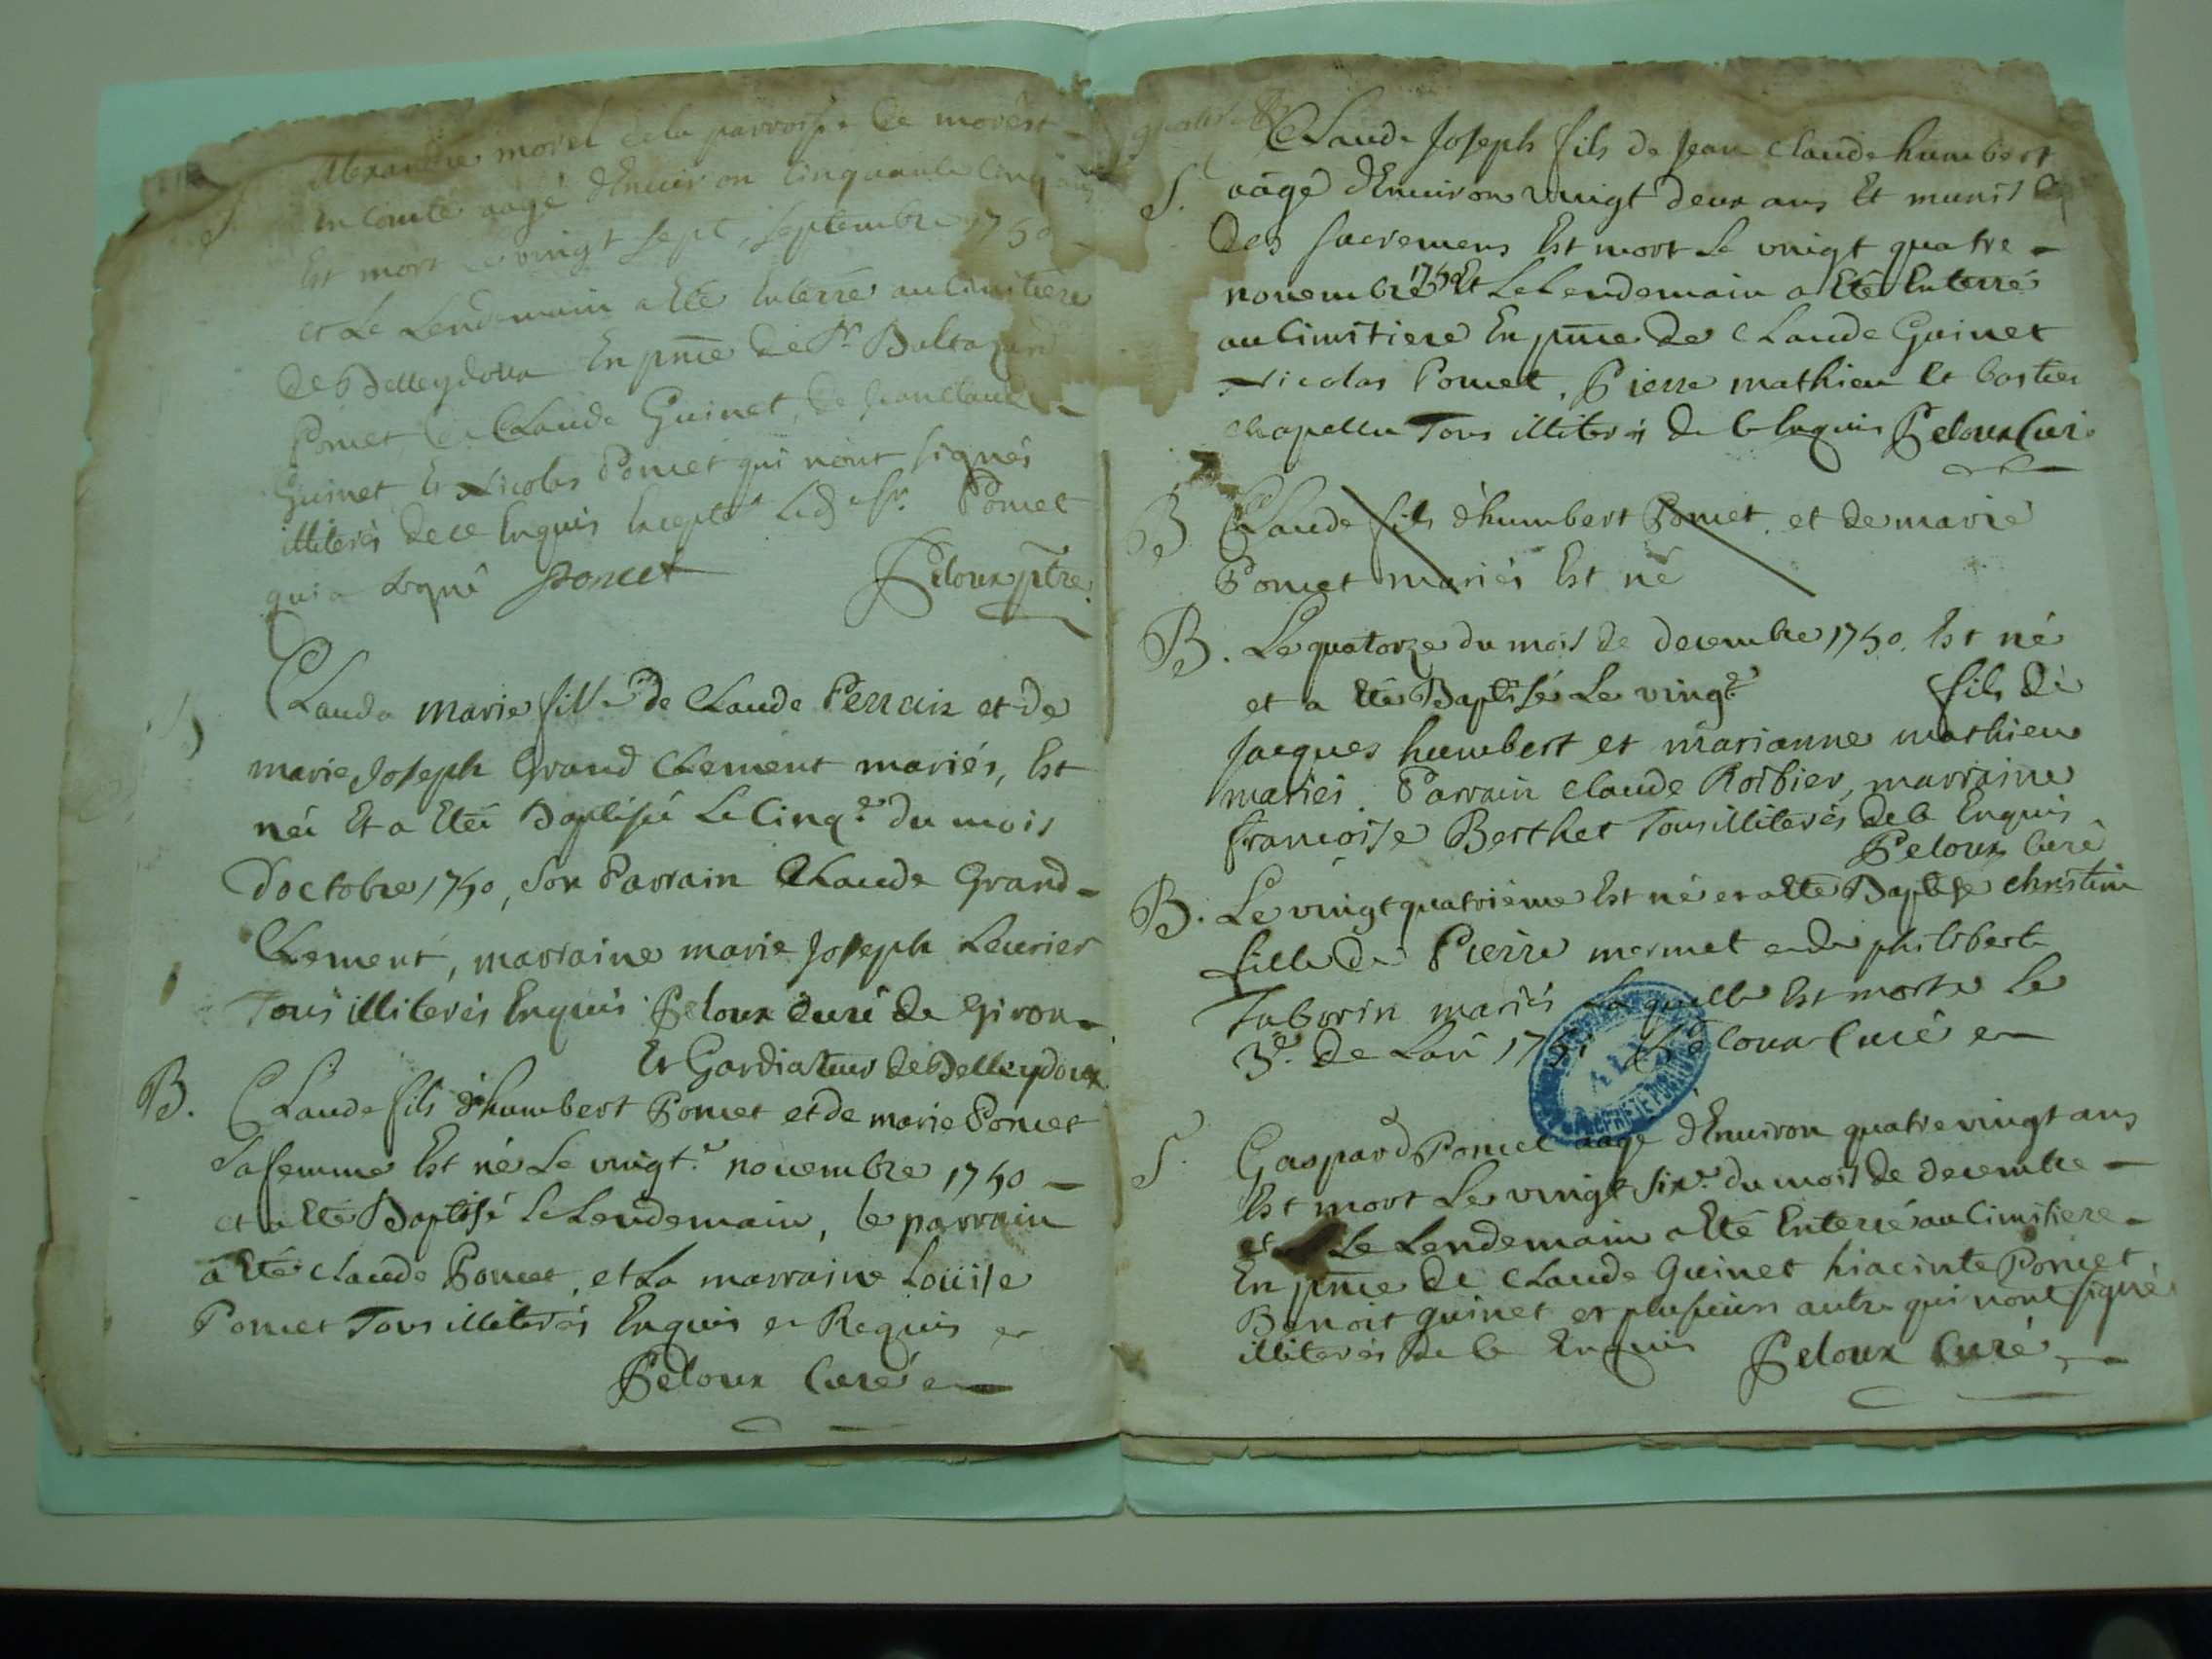 S.
Alexandre morel dela parroisse de morest
en Comté aagé d'Enuiron Cinquante Cinq ans
Est mort le vingt sept septembre 1750
et Le Lendemain a Eté Enterré au Cimitiere
de Belleydoux En pnce de Sr. Baltazard
Poncet, de Claude Guinet, de Jean Claude
Guinet, Et Nicolas Poncet qui n'ont signés
illiterés de ce Enquis Excepté Led. Sr. Poncet
qui a signé Poncet Peloux ptre.
Clauda marie fille de Claude Perrain et de
marie Joseph Grand Clement mariés, Est
née Et a Eté Baptisée Le Cinqe. du mois
d'octobre 1750, son Parrain Claude Grand-
Clement, marraine marie Joseph Leurier
Tous illiterés Enquis Peloux Curé de Giron
Et Gardiateur de Belleydoux
B. Claude fils d'humbert Poncet et de marie Poncet
sa femme Est né Le vingte. nouembre 1750
et a Eté Baptisé Le Lendemain, le parrain
a Eté Claude Poncet, et La marraine Loüise
Poncet Tous illiterés Enquis et Requis
Peloux Curé
S. Claude Joseph fils de Jean Claude humbert
aagé d'Enuiron vingt deux ans Et munis
des sacremens Est mort Le vingt quatre
nouembre 1750 Et Le Lendemain a Eté Enterré
au Cimitiere En pnce de Claude Guinet
Nicolas Poncet, Pierre mathieu Et
chapellu Tous illiterés de le Enquis Peloux Curé
B Claude fils d'humbert Poncet, et de marie
Poncet mariés Est né
B. Le quatorze du mois de decembre 1750. Est né
et a Eté Baptisé Le vingte fils de
Jacques humbert et marianne mathieu
mariés. Parrain Claude Rosbier, marraine
francoise Berthet Tous illiterés de le Enquis
Peloux Curé
B. Le vingt quatrieme Est né et a Eté Baptisé christine
fille de Pierre mermet et de philiberte
Taborin mariés Laquelle Est morte le
3e. de Lan 1751 Peloux Curé
S. Gaspard Poncet aagé d'Enuiron quatre vingt ans
Est mort Le vingt sixe. du mois de decembre
et Le Lendemain a Eté Enterré au Cimitiere
En pnce de Claude Guinet hiacinte Poncet
Benoit guinet et plusieurs autre qui n'ont signé
illiterés de le Enquis Peloux Curé